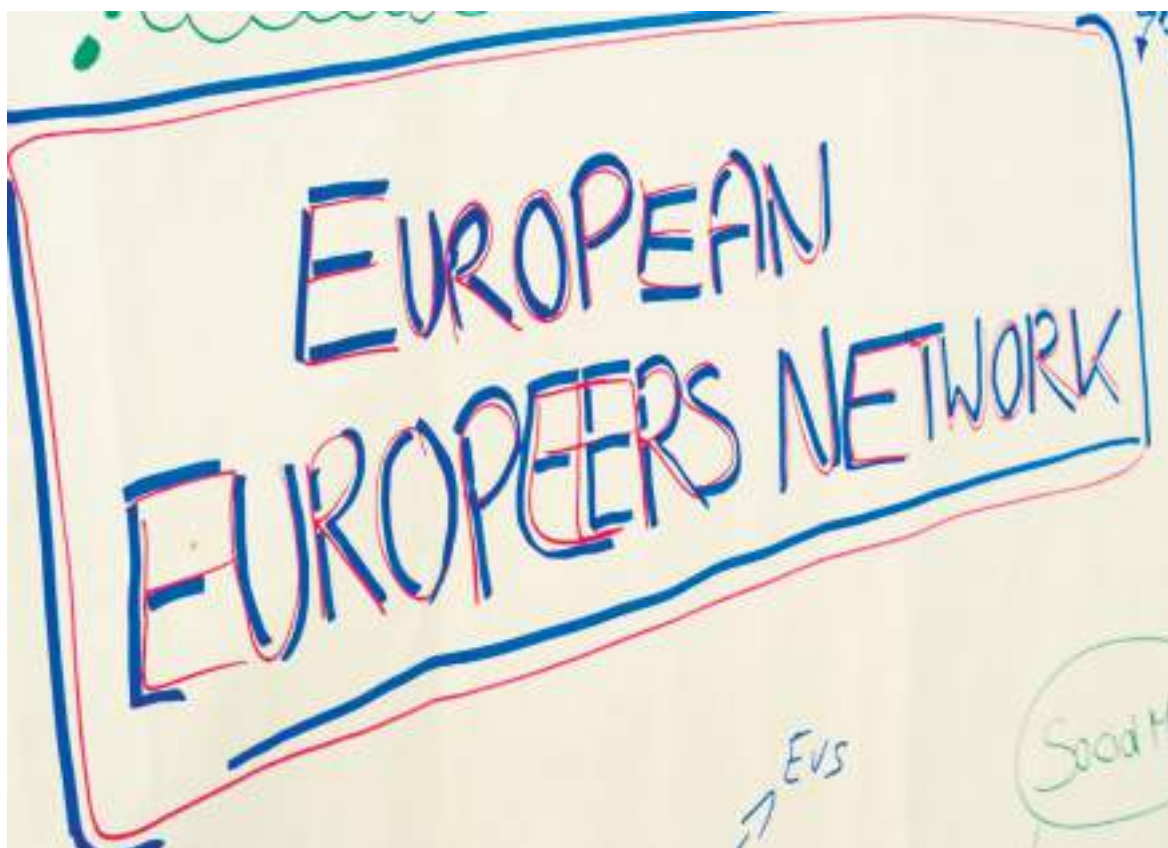 EUROPEAN
EUROPEERS NETWORK
EVS
Social